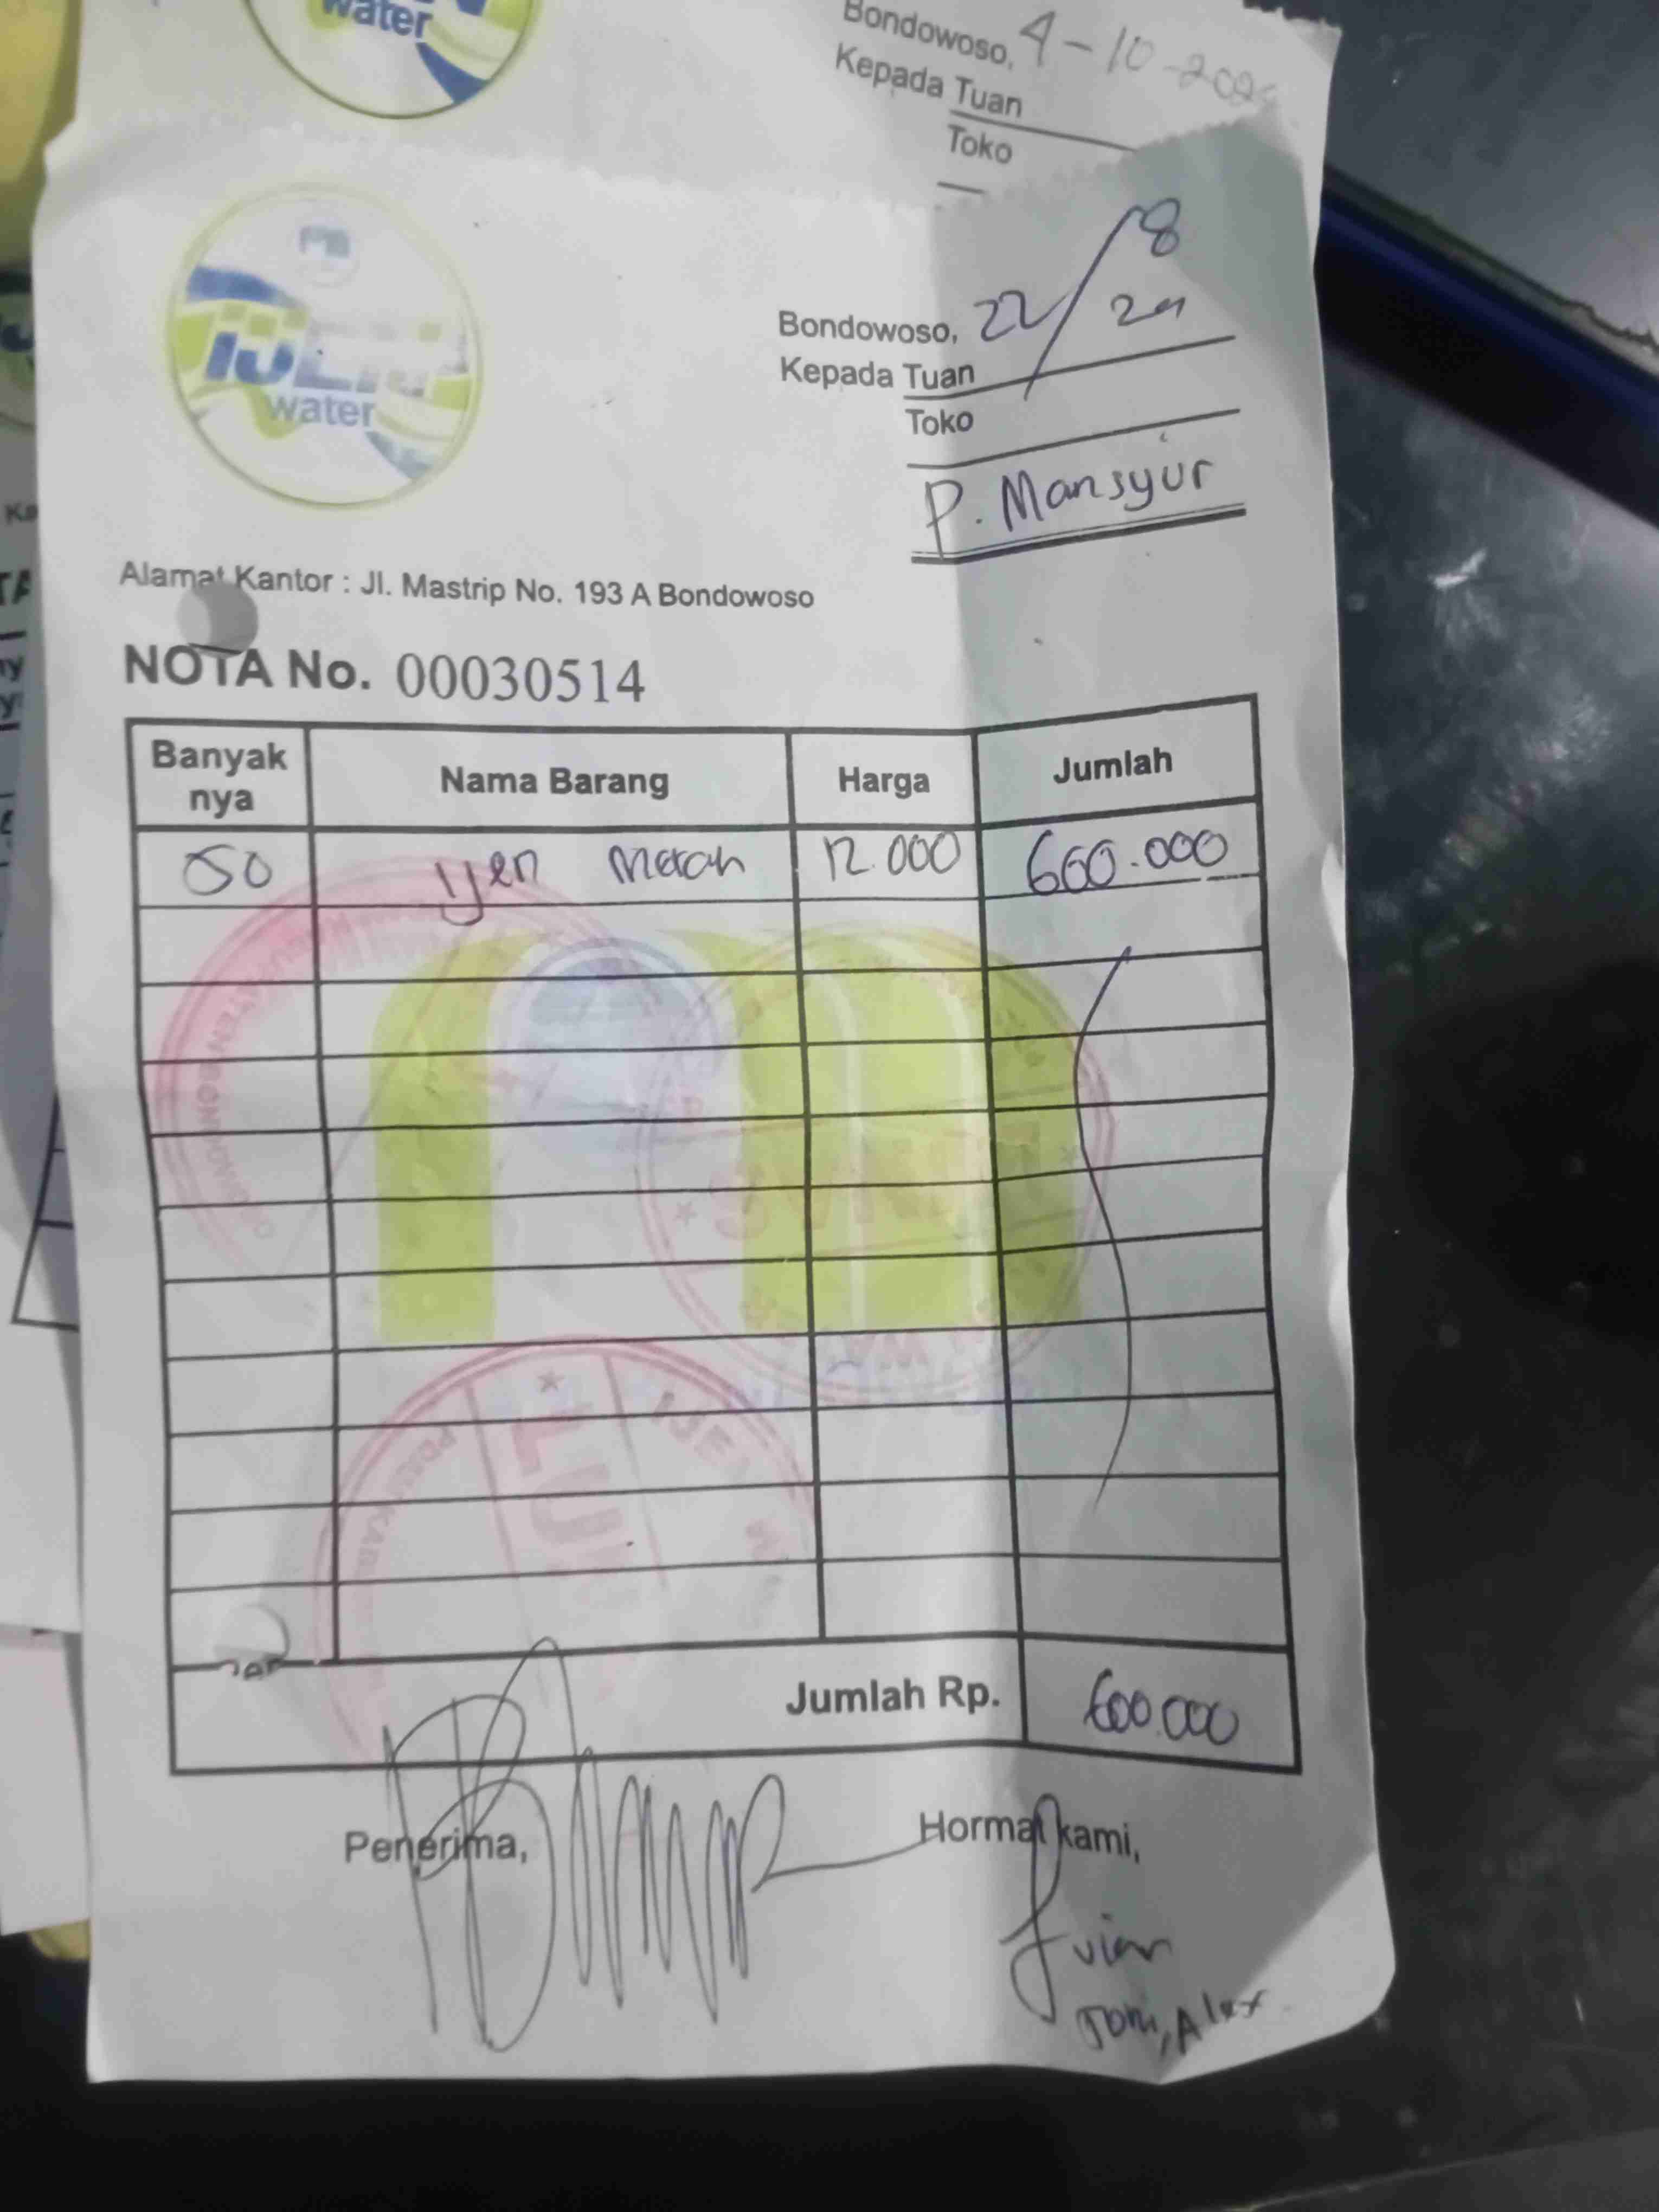 water
Bondowoso, 4-10-202
Kepada Tuan
Toko
IJEN
water
Bondowoso, 22/8 24
Kepada Tuan
Toko
P. Mansyur
Alamat Kantor : Jl. Mastrip No. 193 A Bondowoso
NOTA No. 00030514
Banyak nya Nama Barang Harga Jumlah
50 Ijen Merah 12.000 600.000
Jumlah Rp. 600.000
Penerima, Hormat kami,
Jvian
Toni, Alex